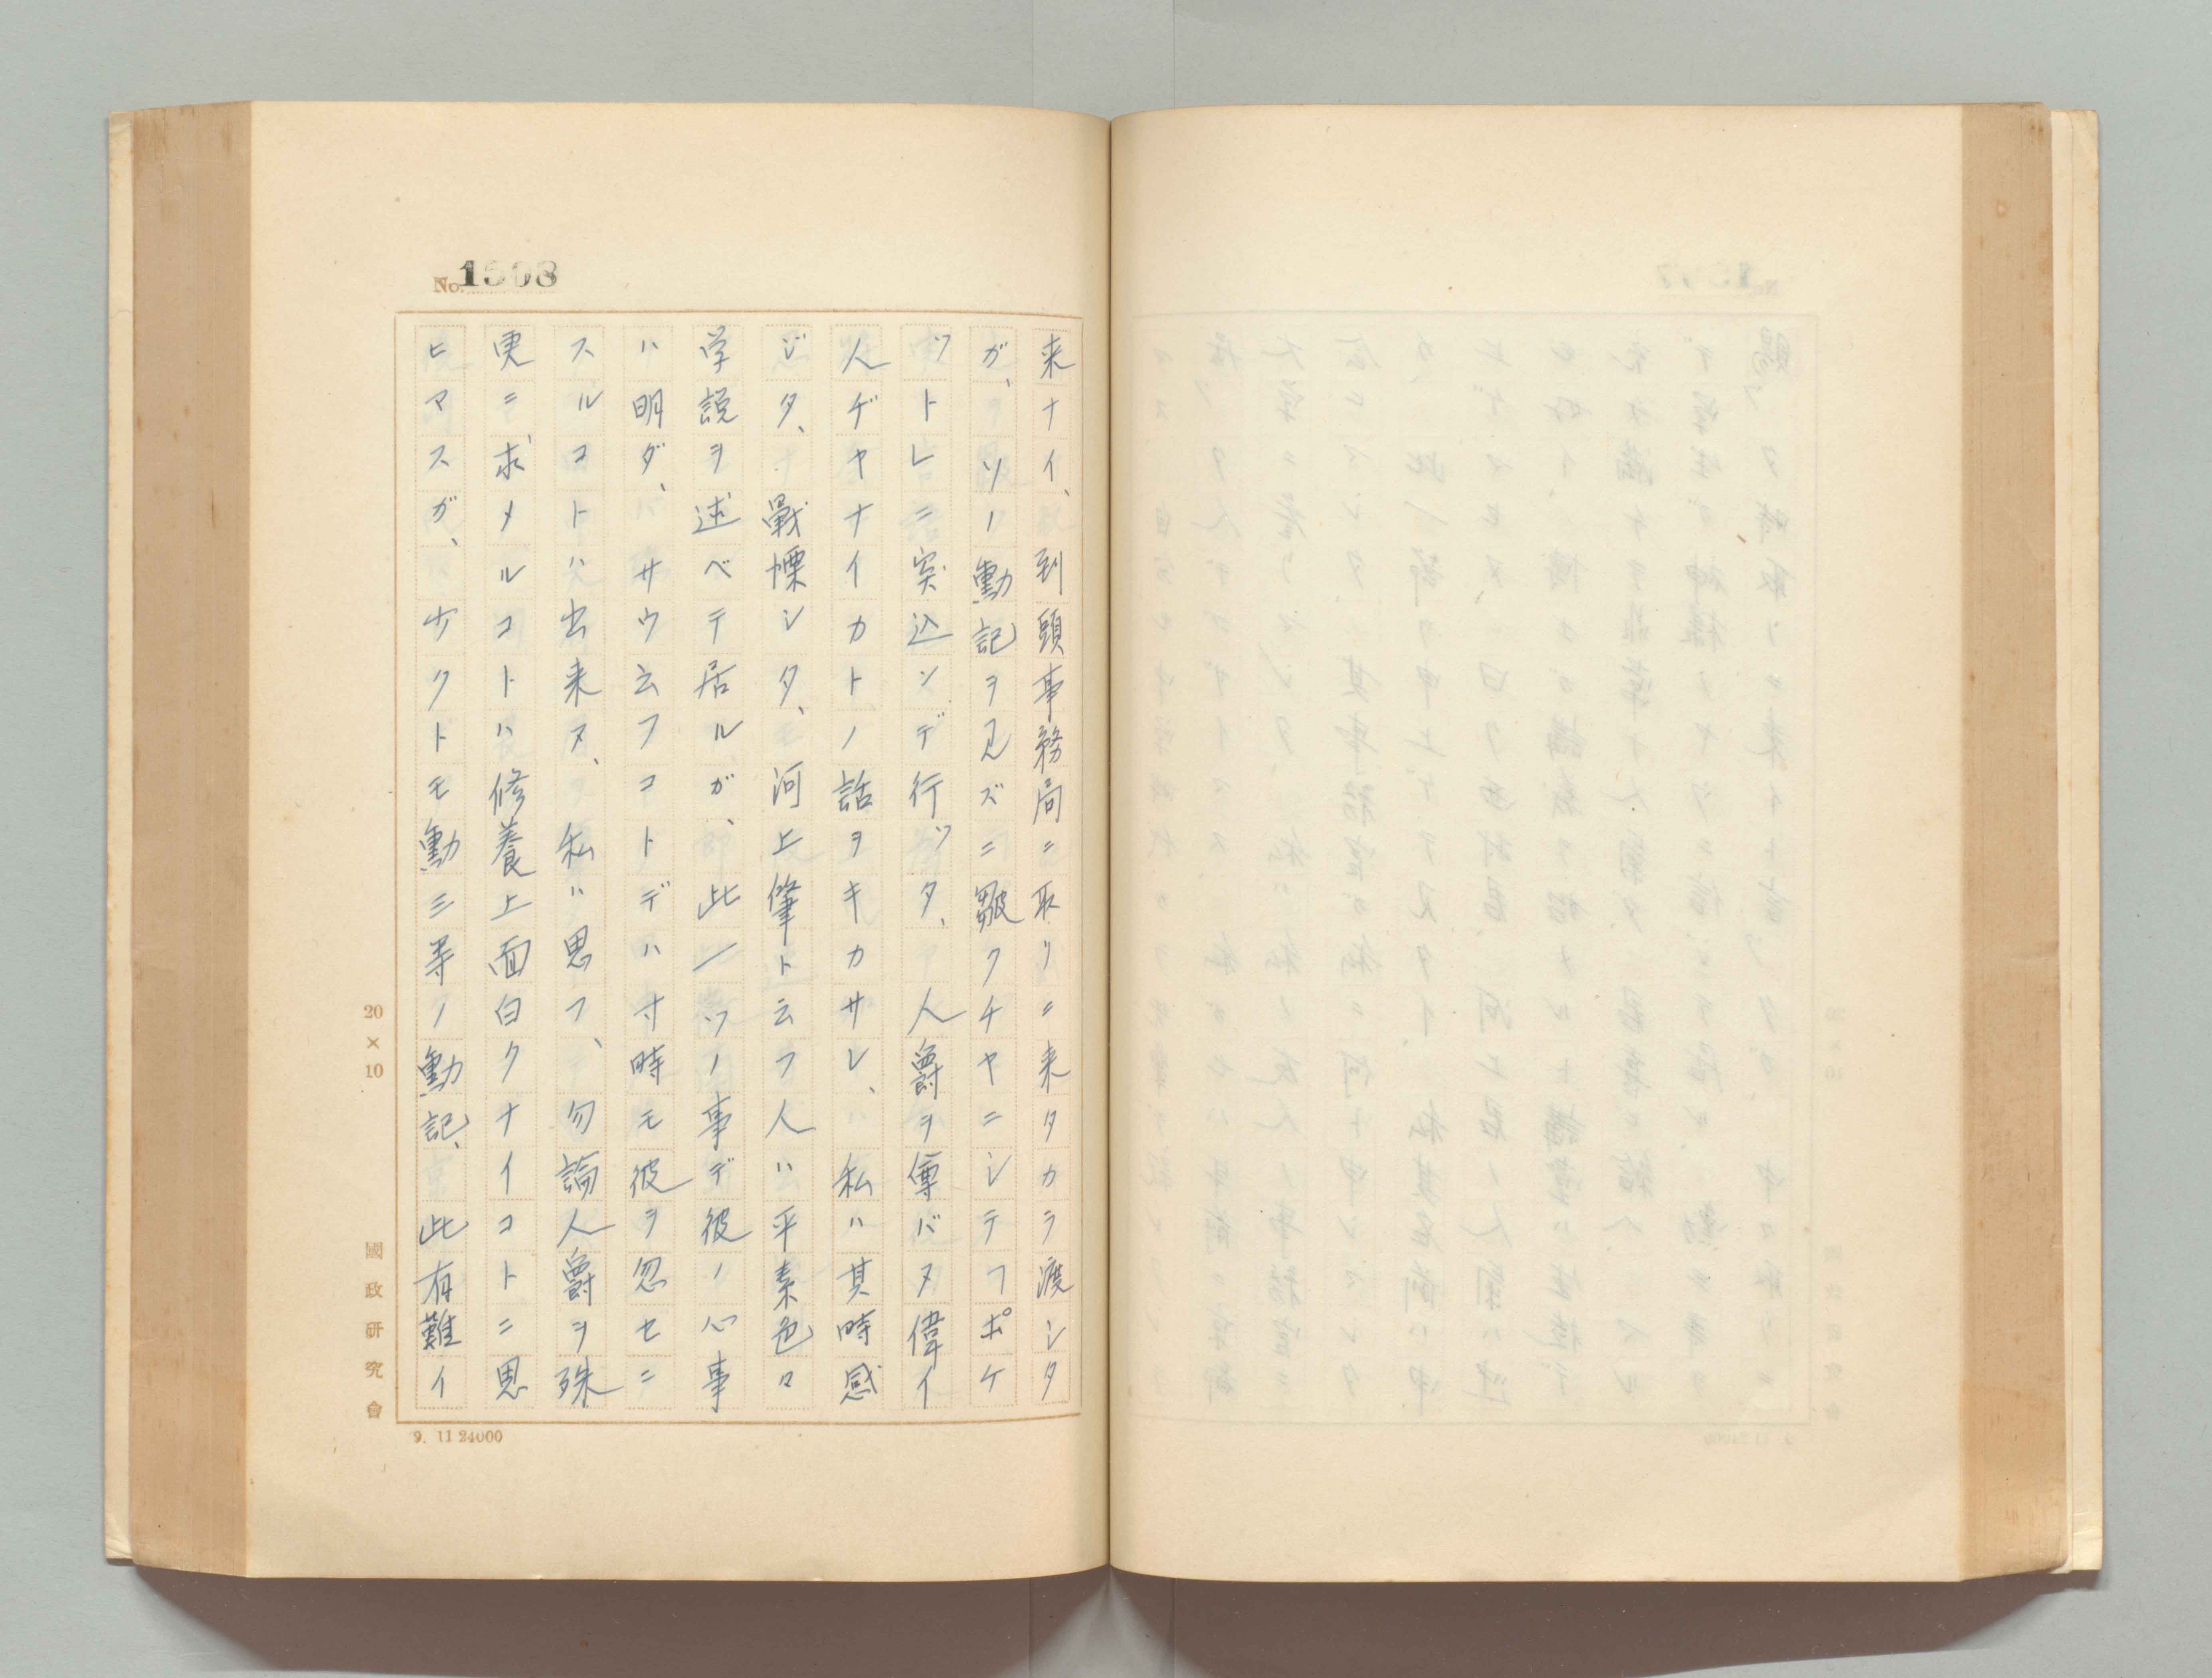 No. 1508
来ナイ、到頭事務局ニ取リニ来タカラ渡シタ
ガ、ソノ勳記ヲ見ズニ皺クチヤニシテフポケ
ツトレニ突込ンデ行ツタ、人爵ヲ尊バヌ偉イ
人ヂヤナイカトノ話ヲキカサレ、私ハ其時感
ジタ、戰慄シタ、河上肇ト云フ人ハ平素色々
学説ヲ述ベテ居ルガ、此一ツノ事デ彼ノ心事
ハ明ダ、サウ云フコトデハ寸時モ彼ヲ忽セニ
スルコトハ出来ヌ、私ハ思フ、勿論人爵ヲ殊
更ニ求メルコトハ修養上面白クナイコトニ思
ヒマスガ、少クトモ勳三等ノ勳記、此有難イ
20×10
國政研究會
9. 11 24000